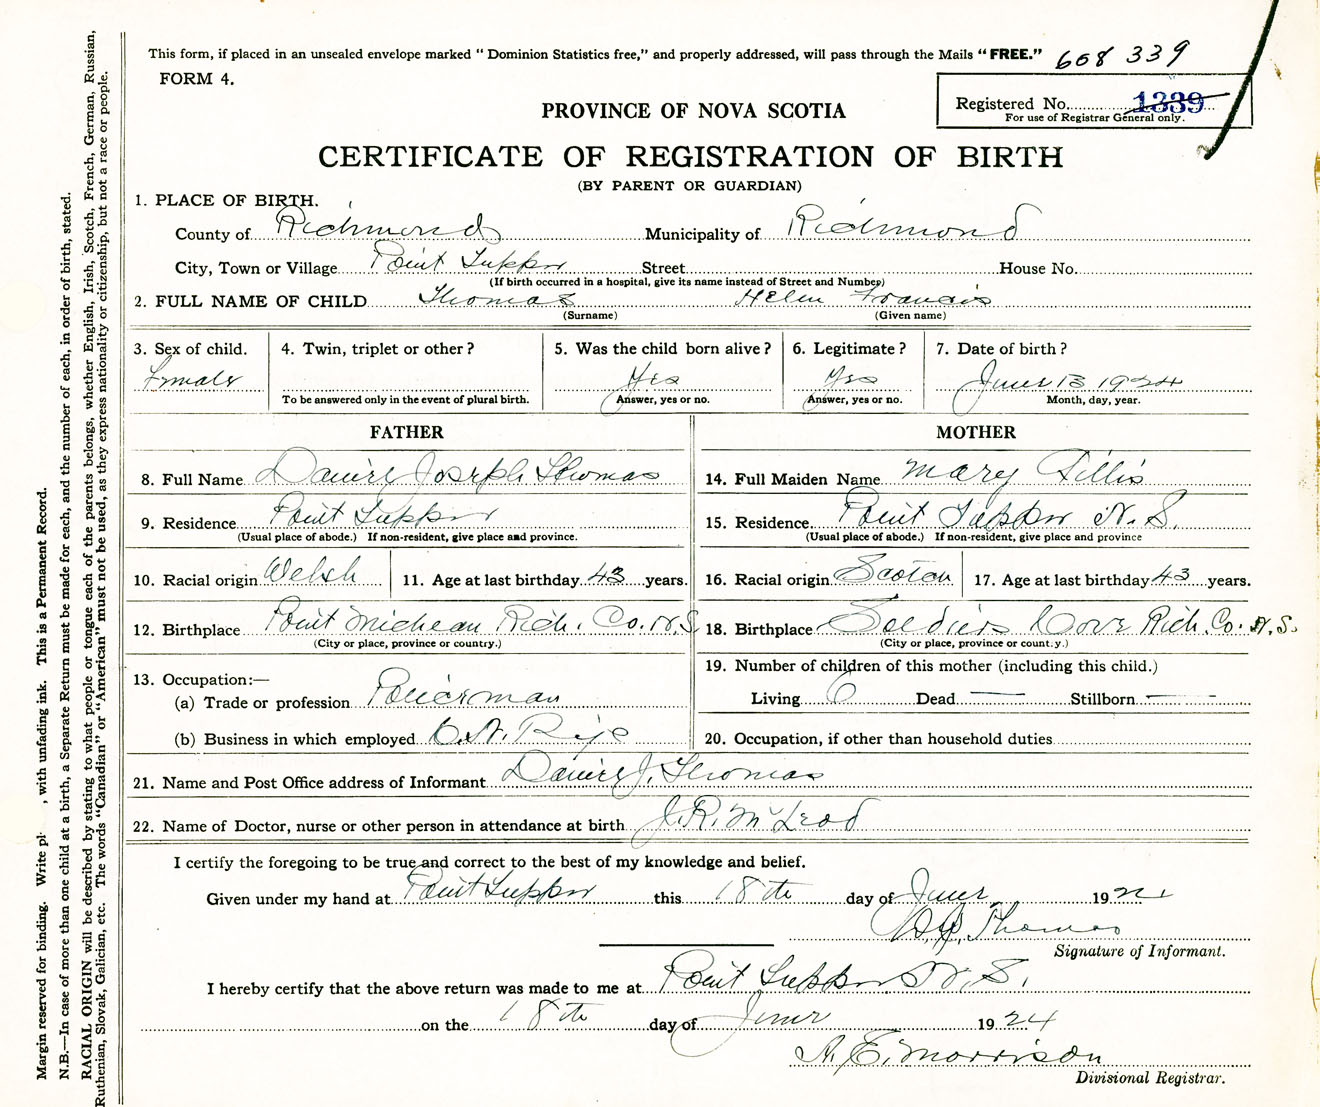 This form, if placed in an unsealed envelope marked " Dominion Statistics free," and properly addressed, will pass through the Mails "FREE." 608 339
FORM 4.
Registered No. 1339
For use of Registrar General only.
PROVINCE OF NOVA SCOTIA
CERTIFICATE OF REGISTRATION OF BIRTH
(BY PARENT OR GUARDIAN)
1. PLACE OF BIRTH.
County of Richmond Municipality of Richmond
City, Town or Village Point Tupper Street House No.
(If birth occurred in a hospital, give its name instead of Street and Number)
2. FULL NAME OF CHILD Thomas Helen Francis
(Surname) (Given name)
3. Sex of child. 4. Twin, triplet or other? 5. Was the child born alive? 6. Legitimate? 7. Date of birth?
Female Yes Yes June 13 1924
To be answered only in the event of plural birth. Answer, yes or no. Answer, yes or no. Month, day, year.
FATHER MOTHER
8. Full Name Daniel Joseph Thomas 14. Full Maiden Name Mary Fillis
9. Residence Point Tupper 15. Residence. Point Tupper N. S.
(Usual place of abode.) If non-resident, give place and province. (Usual place of abode.) If non-resident, give place and province
10. Racial origin Welsh 11. Age at last birthday 43 years. 16. Racial origin Scotch 17. Age at last birthday 43 years.
12. Birthplace Point Micheau Rich. Co. N.S. 18. Birthplace Soldiers Cove Rich. Co. N.S.
(City or place, province or country.) (City or place, province or country.)
13. Occupation:— 19. Number of children of this mother (including this child.)
(a) Trade or profession Policeman Living 6 Dead — Stillborn —
(b) Business in which employed C.N. Rys 20. Occupation, if other than household duties
21. Name and Post Office address of Informant Daniel J. Thomas
22. Name of Doctor, nurse or other person in attendance at birth J.R. McLeod
I certify the foregoing to be true and correct to the best of my knowledge and belief.
Given under my hand at Point Tupper this 18th day of June 1924
D.J. Thomas
Signature of Informant.
I hereby certify that the above return was made to me at Point Tupper N. S.
on the 18th day of June 1924
A. E. Morrison
Divisional Registrar.
Margin reserved for binding. Write pl , with unfading ink. This is a Permanent Record.
N.B.—In case of more than one child at a birth, a Separate Return must be made for each, and the number of each, in order of birth, stated.
RACIAL ORIGIN will be described by stating to what people or tongue each of the parents belongs, whether English, Irish, Scotch, French, German, Russian,
Ruthenian, Slovak, Galician, etc. The words "Canadian" or "American" must not be used, as they express nationality or citizenship, but not a race or people.